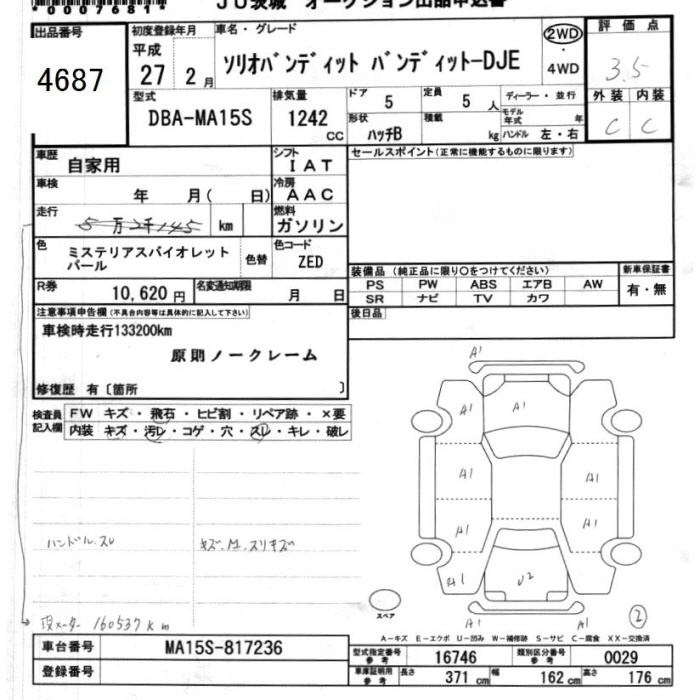 *0007681*
JU茨城 オークション出品申込書
出品番号
4687
初度登録年月
平成
27 2月
車名・グレード
ソリオバンディット バンディット-DJE
2WD
・
4WD
評価点
3.5
型式
DBA-MA15S
排気量
1242
CC
ドア
5
定員
5 人
形状
ハッチB
積載
kg
ディーラー・並行
モデル年式 年
ハンドル 左・右
外装 内装
C C
車歴
自家用
シフト
IAT
セールスポイント(正常に機能するものに限ります)
車検
年 月( 日)
冷房
AAC
走行
km
燃料
ガソリン
色
ミステリアスバイオレット
パール
色替
色コード
ZED
R券
10,620 円
名変通知期限
月 日
装備品 (純正品に限り○をつけてください)
PS PW ABS エアB AW
SR ナビ TV カワ
新車保証書
有・無
後日品
注意事項申告欄(不具合内容等は具体的に記入して下さい)
車検時走行133200km
原則ノークレーム
修復歴 有〔箇所 〕
検査員
記入欄
FW キズ・飛石・ヒビ割・リペア跡・×要
内装 キズ・汚レ・コゲ・穴・スレ・キレ・破レ
ハンドル.スレ
キズ.M.スリキズ
現メーター 160537km
A1
A1
A1
A1
A1
A1
A1
A1
U2
A1
A1
②
スペア
A−キズ E−エクボ U−凹み W−補修跡 S−サビ C−腐食 XX−交換済
車台番号
MA15S-817236
登録番号
型式指定番号
参考
16746
類別区分番号
参考
0029
車庫証明用
参考
長さ
371 cm
幅
162 cm
高さ
176 cm